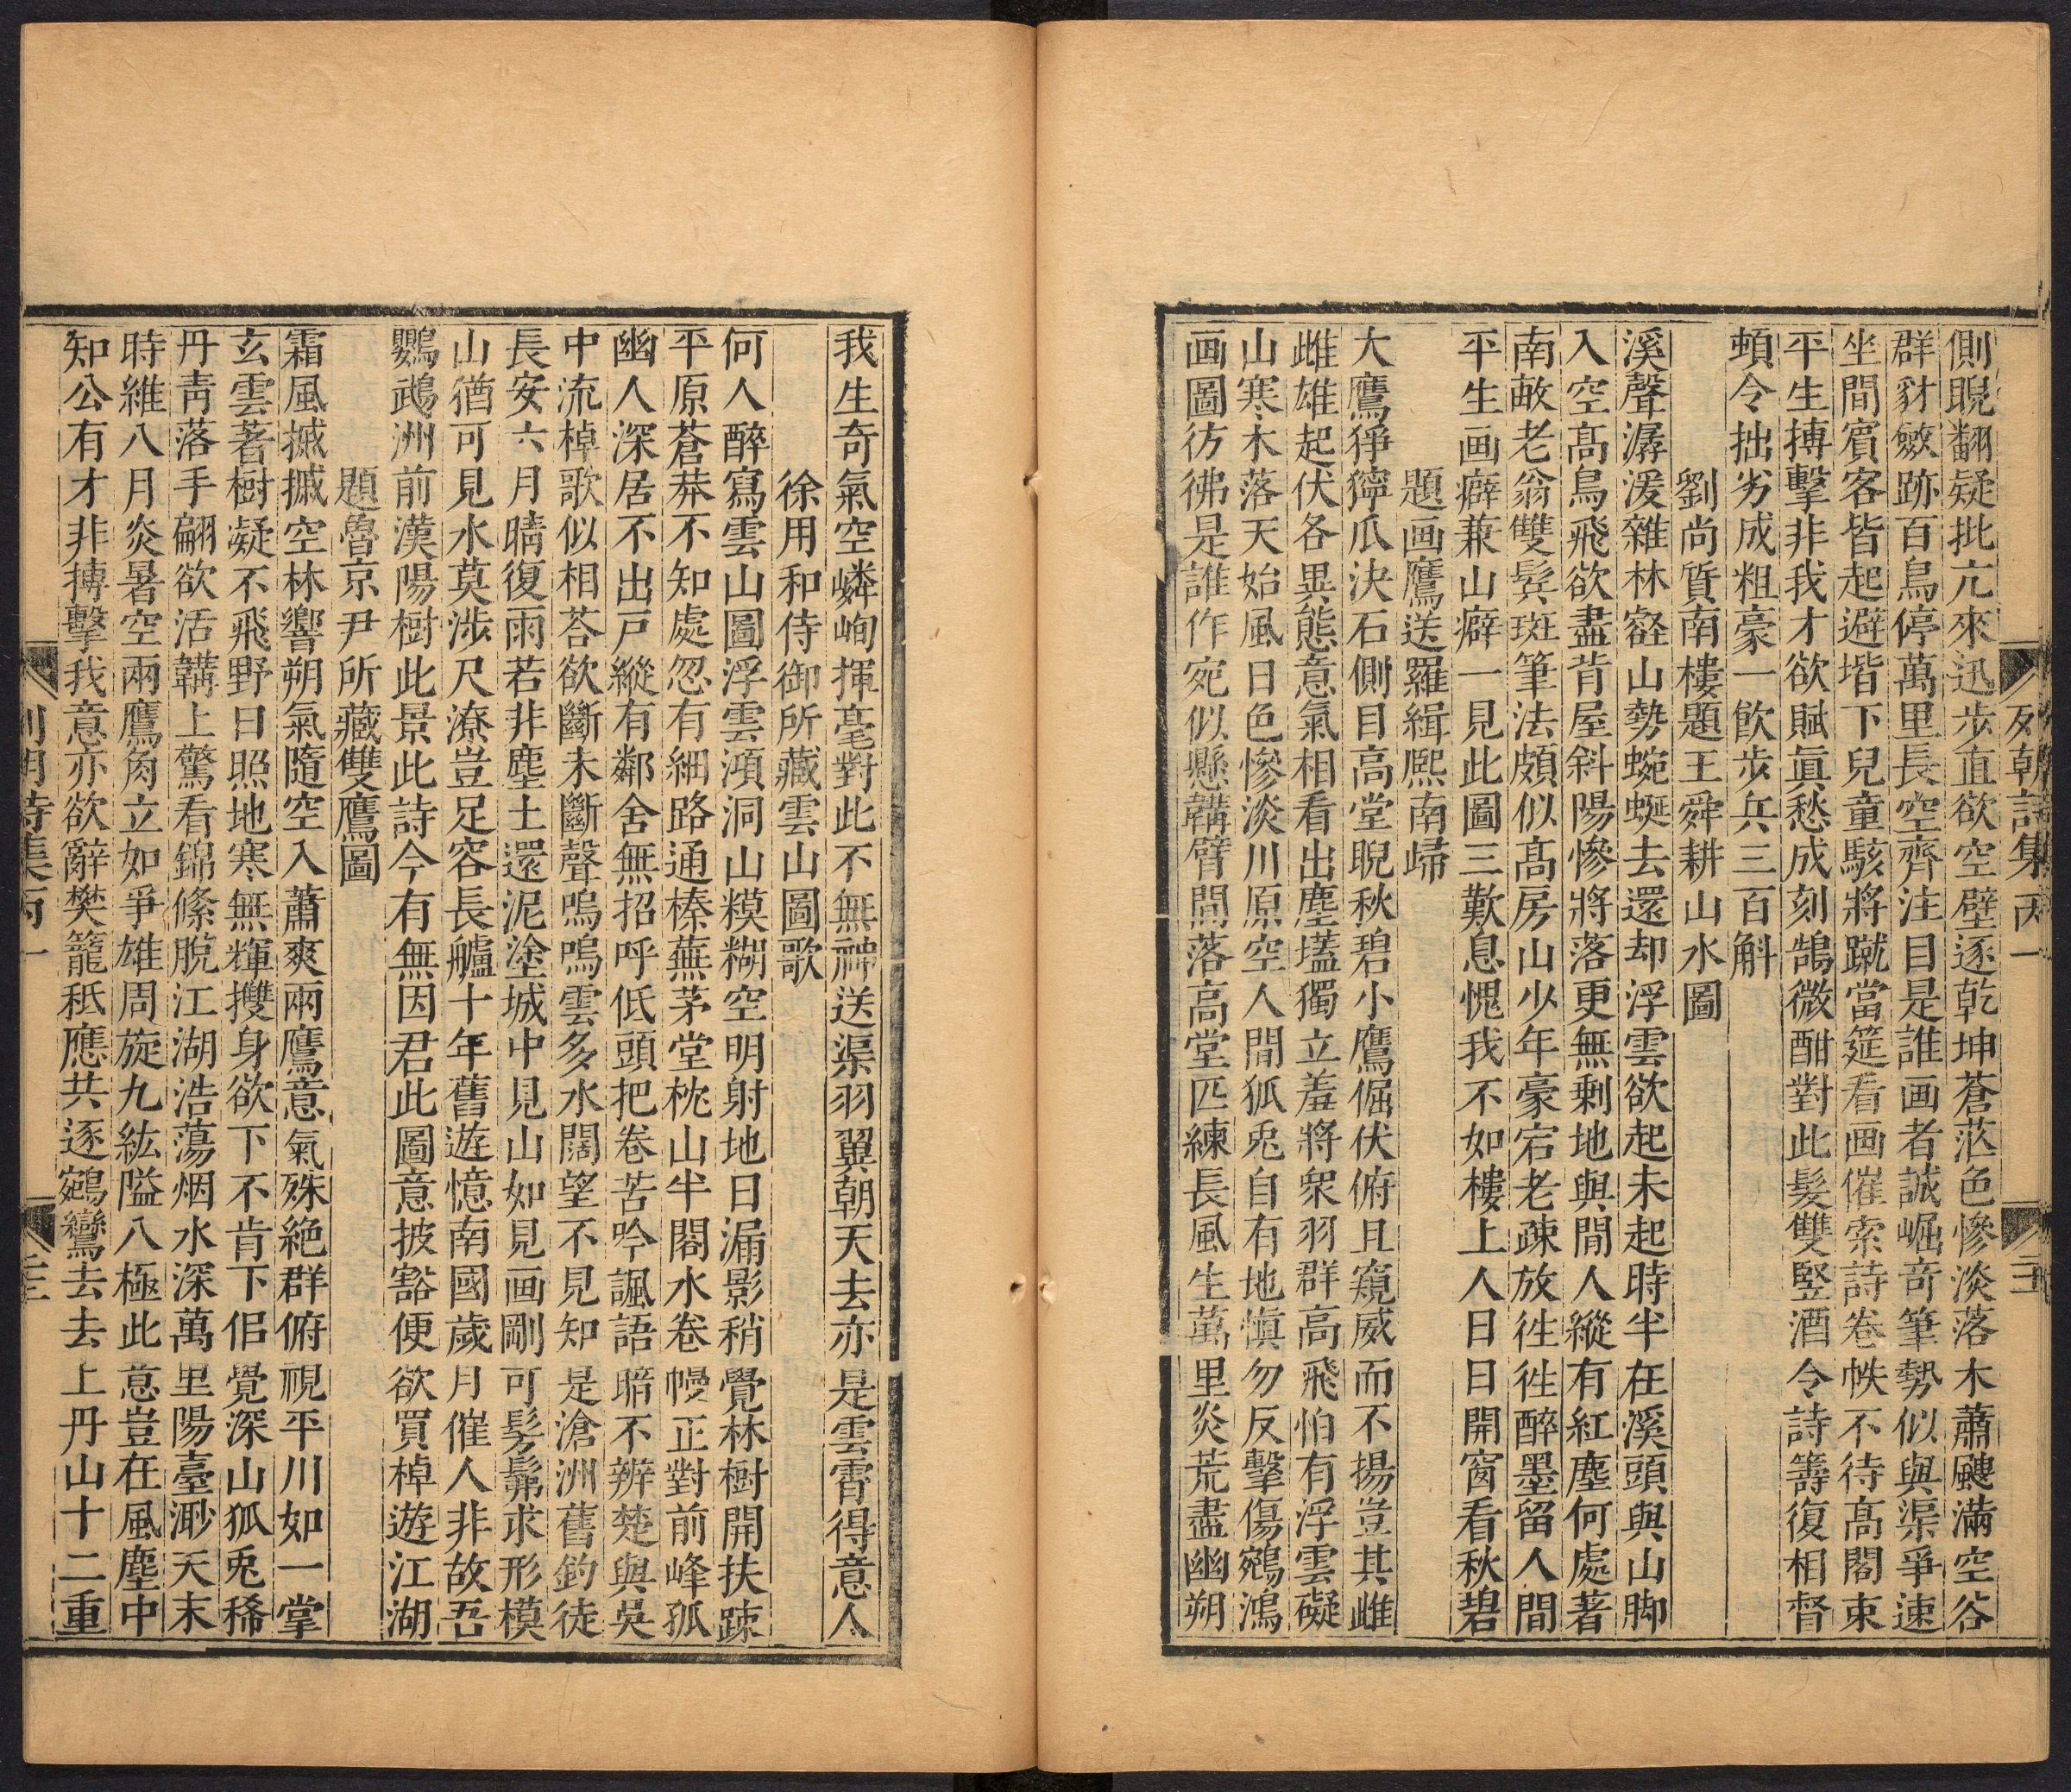 側睨翻疑批亢來迅步直欲空壁逐乾坤蒼茫色慘淡落木蕭颼滿空谷
群豺斂跡百鳥停萬里長空齊注目是誰画者誠崛竒筆勢似與渠爭速
坐間賓客皆起避堦下兒童駭將蹴當筵看画催索詩卷帙不待高閣束
平生搏擊非我才欲賦真愁成刻鵠微酣對此髮雙竪酒令詩籌復相督
頓令拙劣成粗豪一飲步兵三百斛
劉尚質南樓題王舜耕山水圖
溪聲潺湲雜林壑山勢蜿蜒去還却浮雲欲起未起時半在溪頭與山脚
入空高鳥飛欲盡背屋斜陽慘將落更無剩地與閒人縱有紅塵何處著
南畝老翁雙鬂斑筆法頗似髙房山少年豪宕老疎放徃徃醉墨留人間
平生画癖兼山癖一見此圖三歎息愧我不如樓上人日日開窗看秋碧
題画鷹送羅緝熙南歸
大鷹猙獰爪決石側目高堂睨秋碧小鷹倔伏俯且窺威而不揚豈其雌
雌雄起伏各異態意氣相看出塵壒獨立羞將衆羽群高飛怕有浮雲礙
山寒木落天始風日色慘淡川原空人間狐兎自有地慎勿反擊傷鵷鴻
画圖彷彿是誰作宛似懸韝臂間落高堂匹練長風生萬里炎荒盡幽朔
列朝詩集丙一
我生奇氣空嶙峋揮毫對此不無神送渠羽翼朝天去亦是雲霄得意人
徐用和侍御所藏雲山圖歌
何人醉寫雲山圖浮雲澒洞山糢糊空明射地日漏影稍覺林樹開扶踈
平原蒼莽不知處忽有細路通榛蕪茅堂枕山半閣水卷幔正對前峰孤
幽人深居不出戸縱有鄰舍無招呼低頭把卷苦吟諷語暗不辨楚與吳
中流棹歌似相荅欲斷未斷聲嗚嗚雲多水闊望不見知是滄洲舊釣徒
長安六月晴復雨若非塵土還泥塗城中見山如見画剛可髣髴求形模
山猶可見水莫涉尺潦豈足容長艫十年舊遊憶南國歲月催人非故吾
鸚鵡洲前漢陽樹此景此詩今有無因君此圖意披豁便欲買棹遊江湖
題魯京尹所藏雙鷹圖
霜風摵摵空林響朔氣隨空入蕭爽兩鷹意氣殊絶群俯視平川如一掌
玄雲著樹凝不飛野日照地寒無輝㩳身欲下不肯下但覺深山狐兎稀
丹青落手翩欲活韝上驚看錦絛脫江湖浩蕩烟水深萬里陽臺渺天末
時維八月炎暑空兩鷹角立如爭雄周旋九紘隘八極此意豈在風塵中
知公有才非搏擊我意亦欲辭樊籠秪應共逐鵷鸞去去上丹山十二重